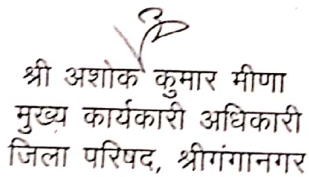 श्री अशोक कुमार मीणा
मुख्य कार्यकारी अधिकारी
जिला परिषद, श्रीगंगानगर